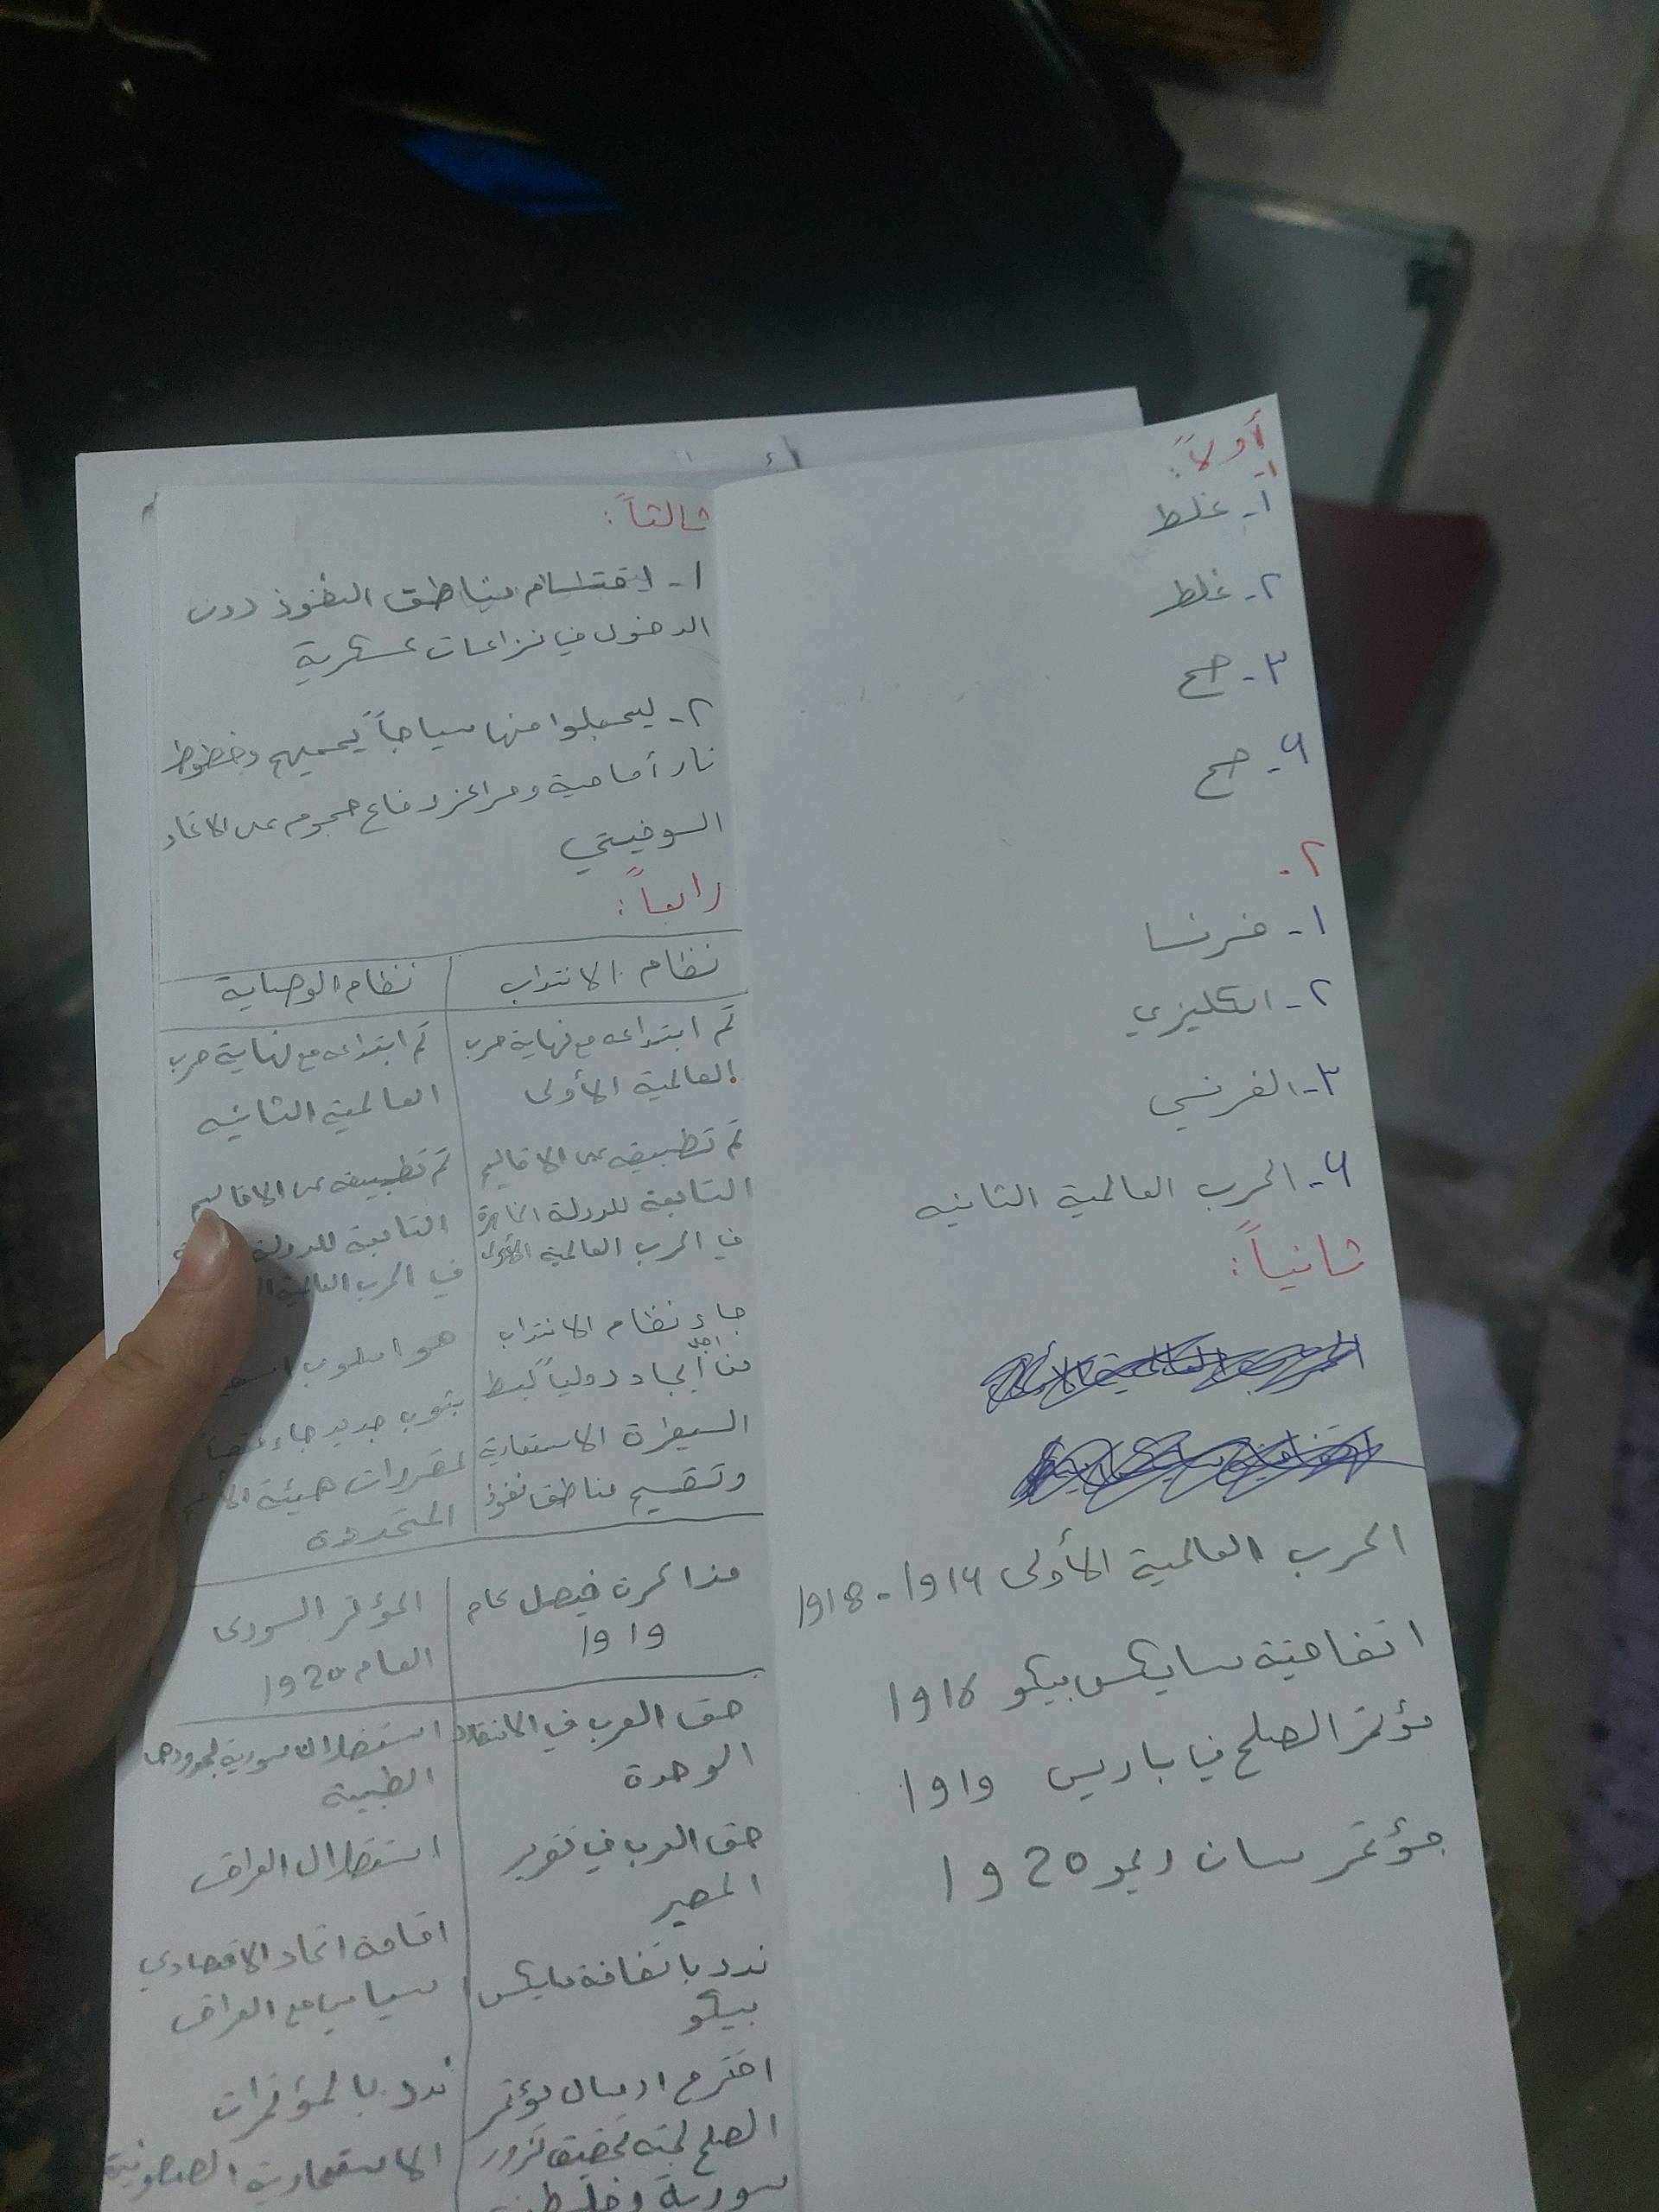 أولاً:
١-
١- غلط
٢- غلط
٣- صح
٤- صح
٢.
١- فرنسا
٢- انكليزي
٣- الفرنسي
٤- الحرب العالمية الثانيه
ثانياً:
الحرب العالمية الأولى 1914 - 1918
اتفاقية سايكس بيكو 1916
مؤتمر الصلح في باريس 1919
مؤتمر سان ريمو 1920
ثالثاً:
١- اقتسام مناطق النفوذ دون
الدخول في نزاعات عسكرية
٢- ليجعلوا منها سياجاً يحميهم وخطوط
نار أمامية ومراكز دفاع هجوم على الاتحاد
السوفيتي
رابعاً:
نظام الانتداب
تم ابتداعه مع نهاية حرب
العالمية الأولى
تم تطبيقه على الاقاليم
التابعة للدولة الخاسرة
في الحرب العالمية الأولى
جاء نظام الانتداب
من اجل ايجاد دولياً لبسط
السيطرة الاستعمارية
وتقسيم مناطق نفوذ
نظام الوصاية
تم ابتداعه مع نهاية حرب
العالمية الثانيه
تم تطبيقه على الاقاليم
التابعة للدولة
في الحرب العالمية
هو اسلوب
بثوب جديد جاء
لمقررات هيئة الأمم
المتحدة
مذاكرة فيصل عام
1919
حق العرب في
الوحدة
حق العرب في تقرير
المصير
ندد باتفاقة سايكس
بيكو
اقترح ارسال مؤتمر
الصلح لجنه تحقيق تزور
سورية وفلسطين
المؤتمر السوري
العام 1920
استقلال سورية بحدودها
الطبية
استقلال العراق
اقامة اتحاد الاقتصادي
سياسي مع العراق
ندد بالمؤتمرات
الاستعمارية الصهيونية